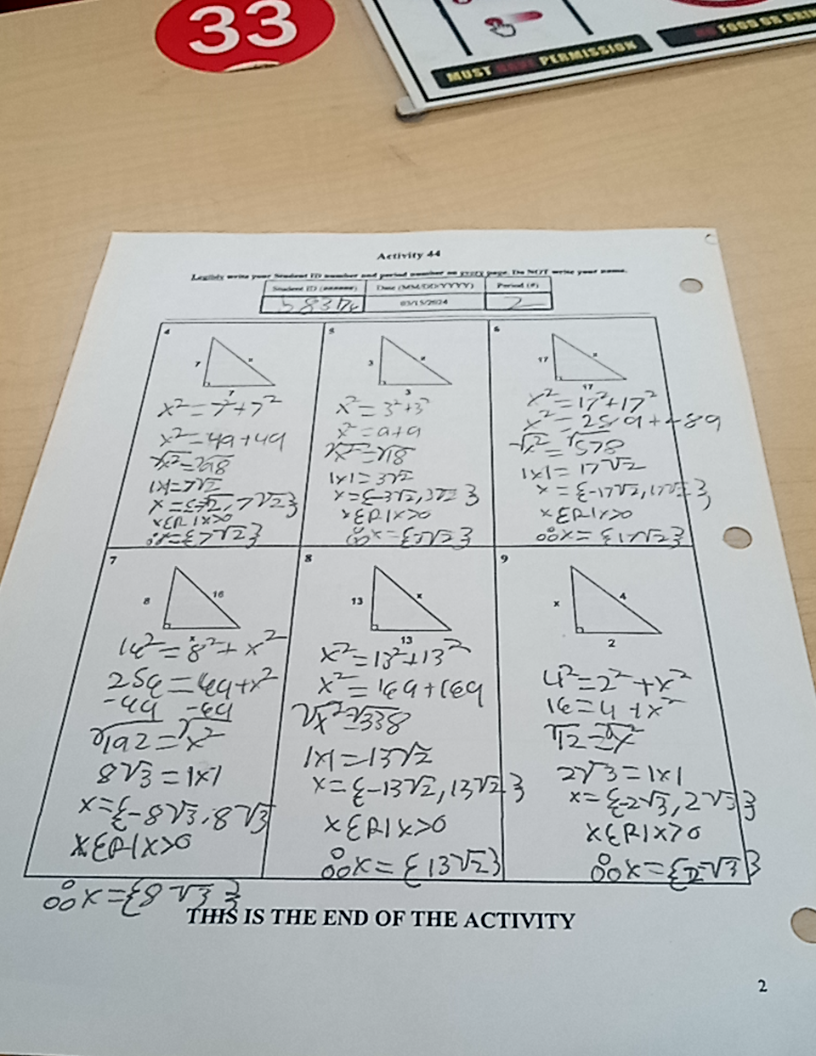 33
MUST HAVE PERMISSION
NO FOOD OR DRIN
Activity 44
Legibly write your Student ID number and period number on every page. Do NOT write your name.
Student ID (######) Date (MM/DD/YYYY) Period (#)
03/15/2024 2
4
7
x
7
x²=7²+7²
x²=49+49
|x|=7√2
x∈R|x>0
5
3
x
3
x²=3²+3²
x²=9+9
√x²=√18
|x|=3√2
x={-3√2,3√2}
x∈R|x>0
6
17
x
17
x²=17²+17²
√x²=√578
|x|=17√2
x={-17√2,17√2}
x∈R|x>0
∴x={17√2}
7
8
16
x
16²=8²+x²
√192=√x²
8√3=|x|
x={-8√3,8√3
x∈R|x>0
∴x={8√3}
8
13
x
13
x²=13²+13²
x²=169+169
√x²=√338
|x|=13√2
x={-13√2,13√2}
x∈R|x>0
∴x={13√2}
9
x
4
2
4²=2²+x²
16=4+x²
√12=√x²
2√3=|x|
x={-2√3,2√3}
x∈R|x>0
∴x={2√3}
THIS IS THE END OF THE ACTIVITY
2